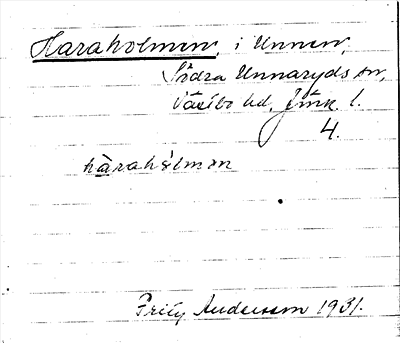 Haraholmen, i Unnen,
Södra Unnaryds sn,
Västbo hd, Jönk. l.
4.
hàrahòlmən
Fritz Andersson 1931.